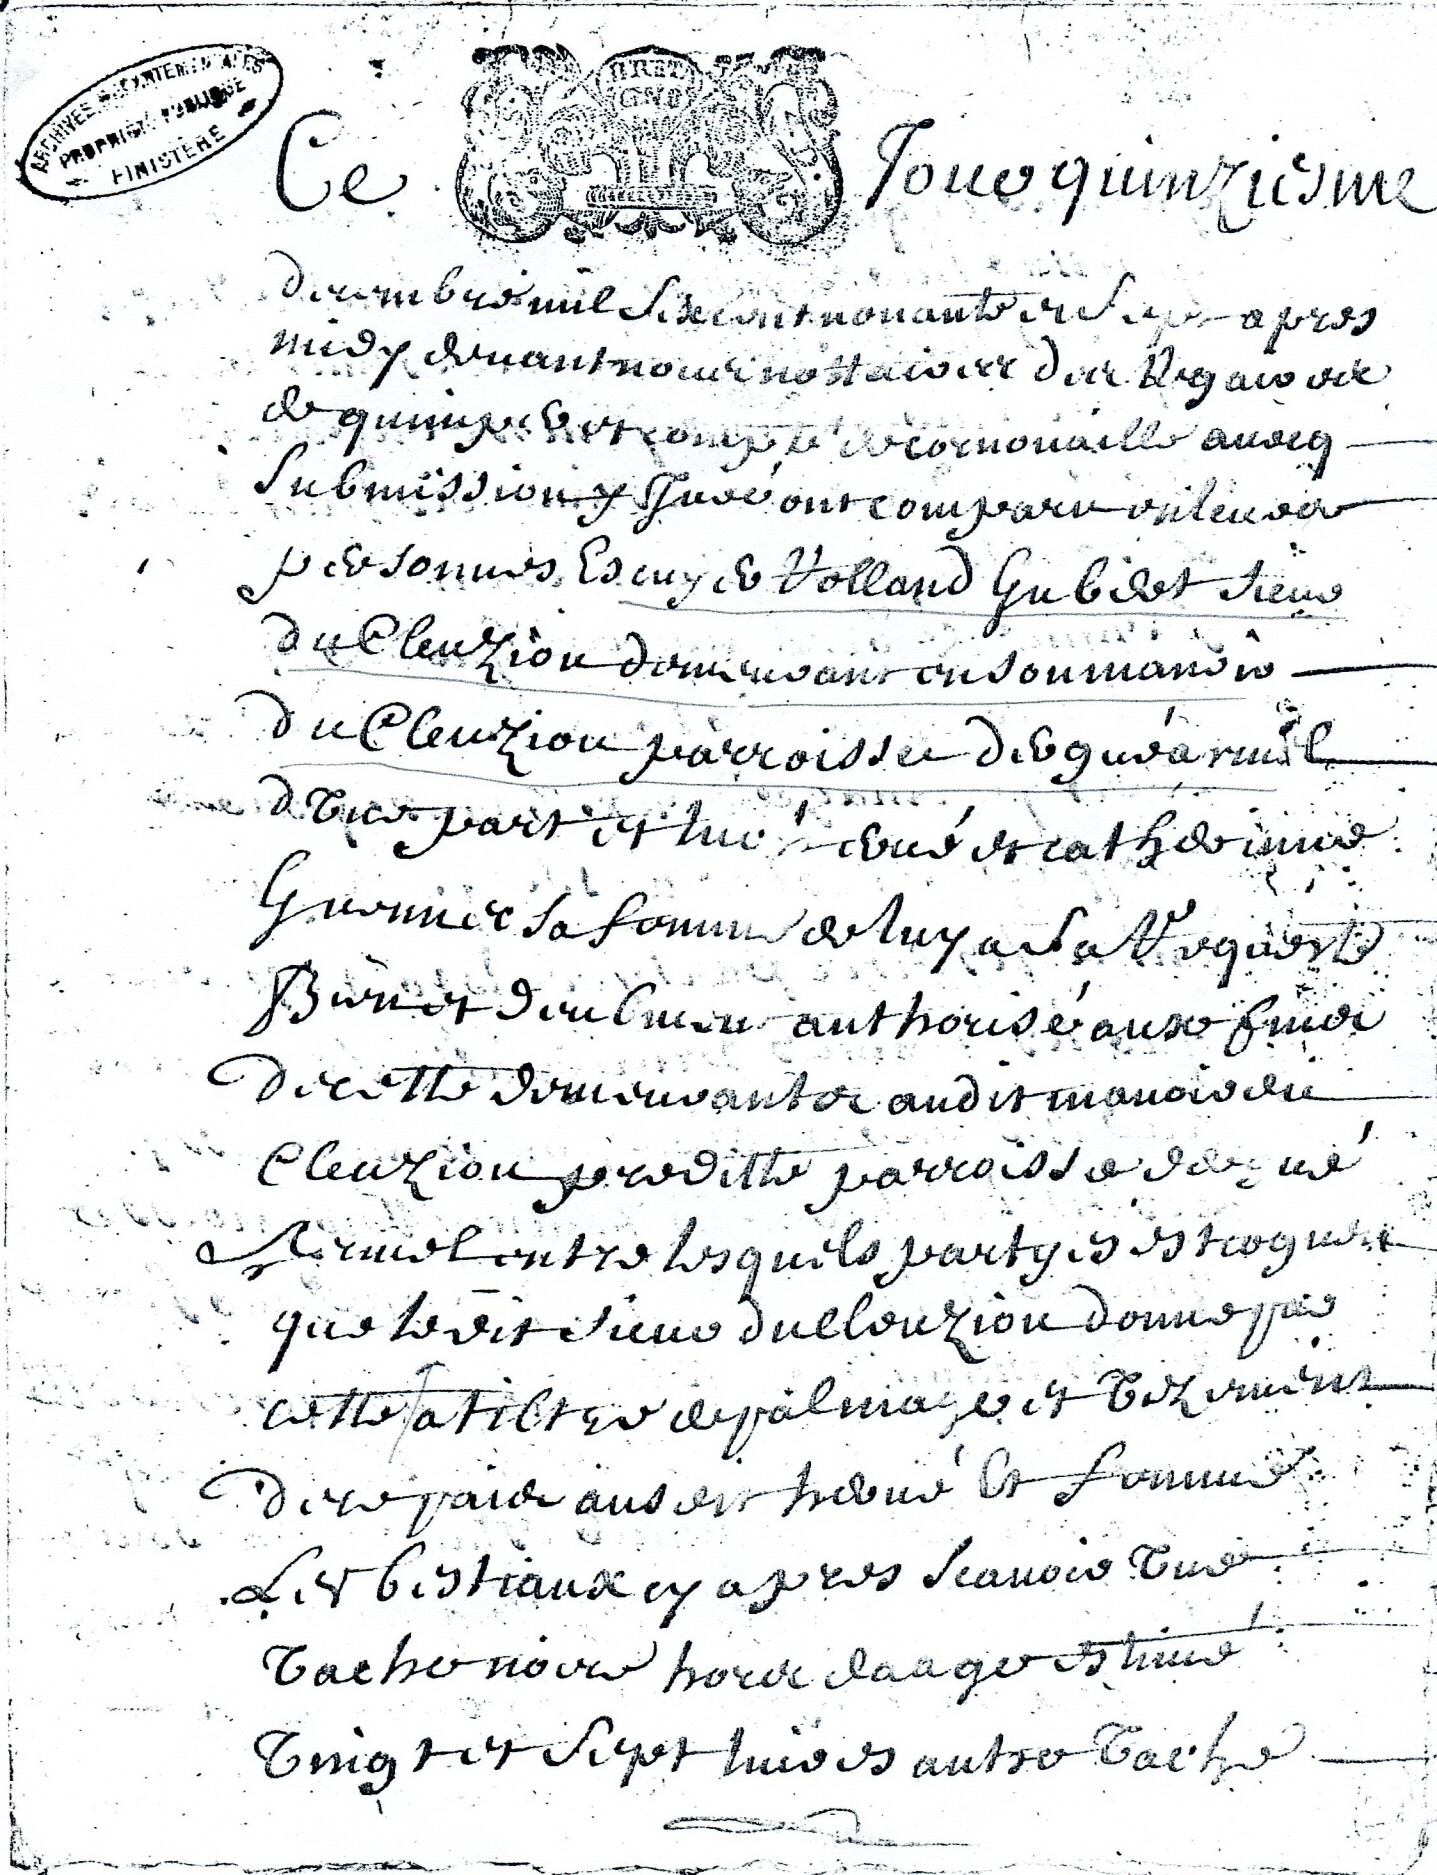 ARCHIVES DEPARTEMENTALES
PROPRIETE PUBLIQUE
FINISTERE
BRETAGNE
Ce Jour quinziesme
decembre mil six cent nonante et sept apres
midy devant nous nottaires des Regaires
de quimper et compté de cornouaille avecq
submission y Juré ont comparu en leurs
personnes Escuyer Rolland Gubidet sieur
du Cleuziou demeurant en son manoir
du Cleuziou parroisse de guéarmel
d'Une part et hervé et catherinne
Guermer sa femme de luy a sa Requeste
Bien et deubment authorisé aux fins
des cette demeurantes audit manoir du
Cleuziou preditte parroisse de gué
Armel entre lesquels partyes est cognu
que ledit sieur du Cleuziou donne par
cette a tiltre de palmage et
de ausdit hervé et femme
Les bestiaux cy apres scauoir Une
Vache noire hors daage estimé
Vingt et sept liures autre Vache